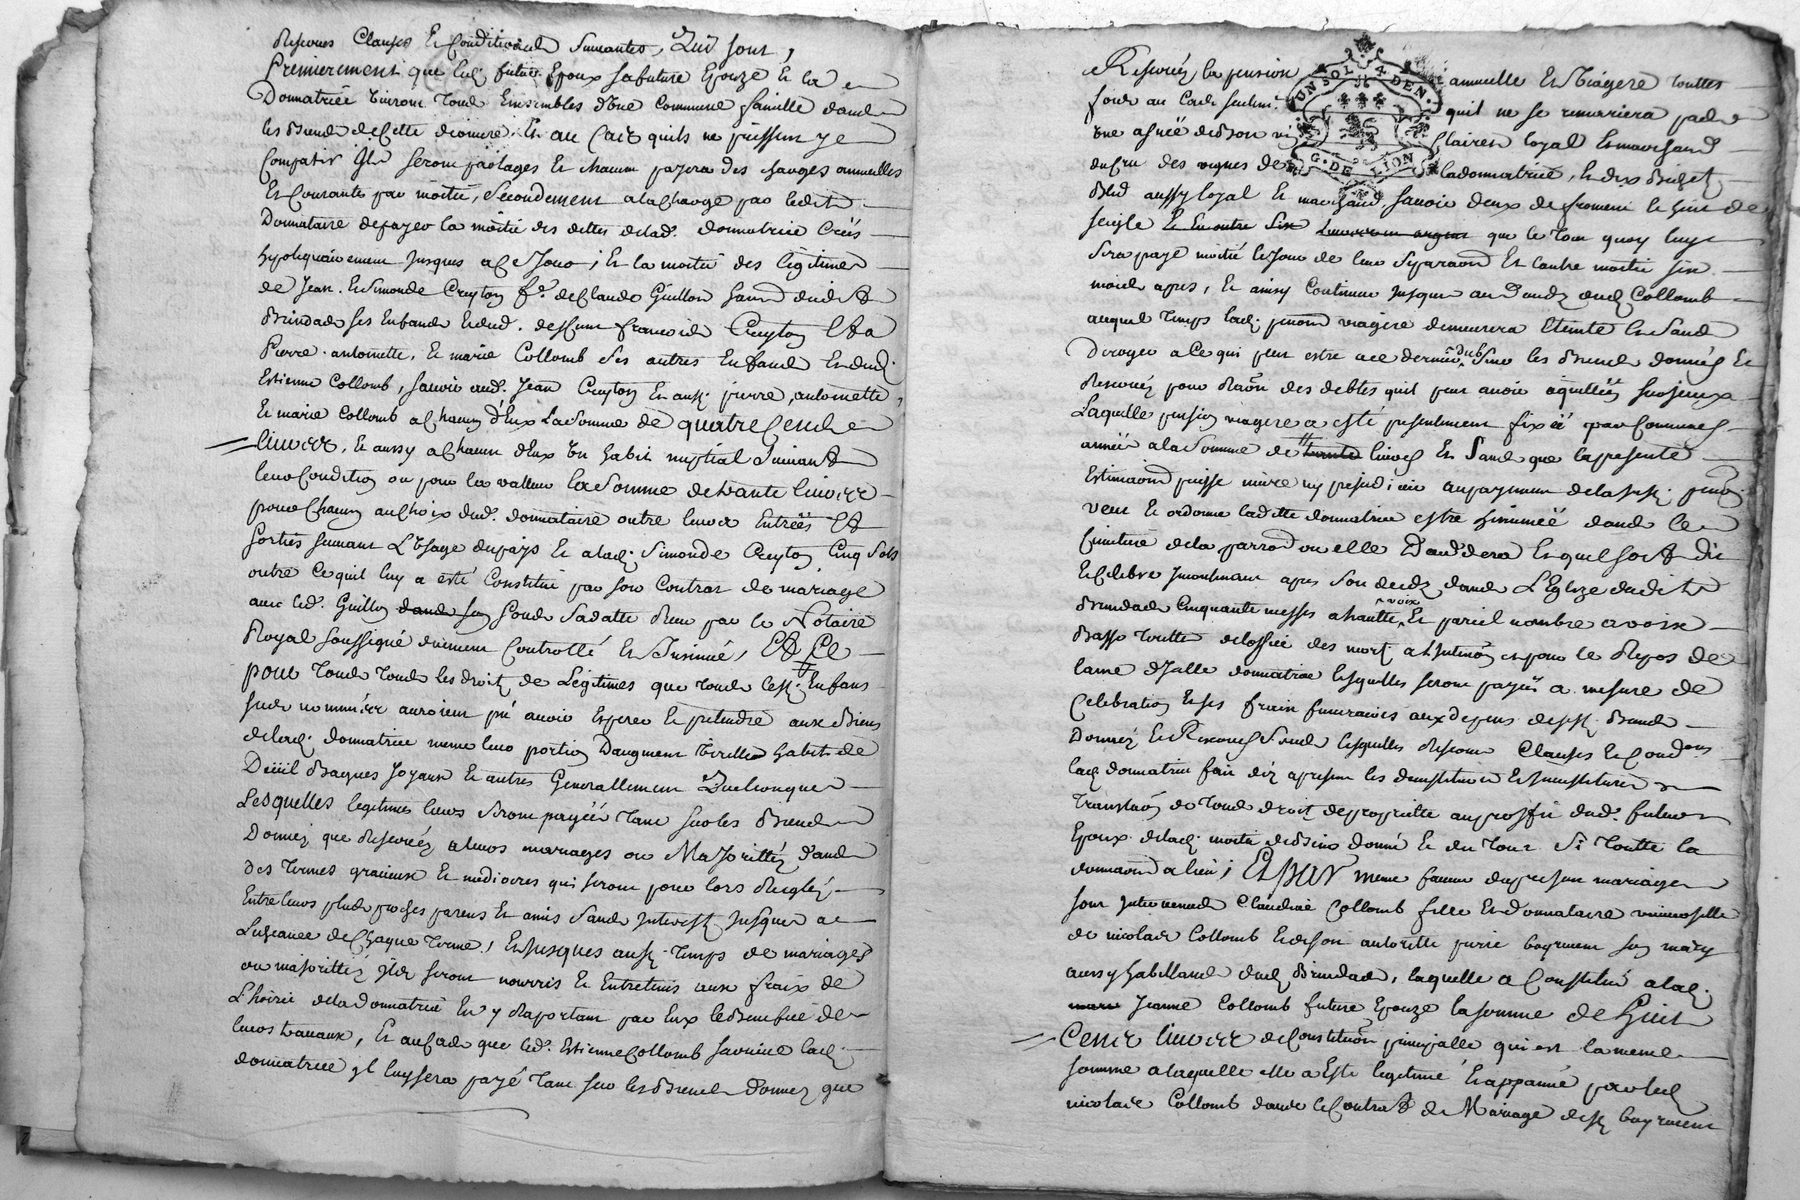 Reserves Clauses Et Conditions Suivantes, Qui sont,
Premierement que led. futur Epoux sa future Epouze Et la
Donnatrice vivront Tous Ensembles d'Une Commune famille dans
les Biens de Cette derniere. Et au Cas quils ne pussent ye
Compatir Ils seront partages Et chacun payera des charges annuelles
Et Courantes par moitie, Secondement a la Charge par Ledit
Donnataire de payer la moitié des dettes de lad. donnatrice Crées
hypotequairement Jusques a Ce Jour; Et la moitié des légitimes
de Jean. Et Simonde Creyton fe. de Claude Guillon dudit
Brindas ses Enfands Et dud. deffunt francois Creyton Et a
Pierre. antoinette, Et marie Collomb Ses autres Enfands Et dud.
Estienne Collomb, savoir aud. Jean Creyton Et ausd. pierre, antoinette,
Et marie Collomb a Chacun d'Eux La Somme de quatre Cents
livres, Et aussy a Chacun d'Eux Un habit nuptial Suivant
leur Condition ou pour la valleur la Somme de trante livres
pour Chacun au Choix dud. donnataire outre leurs Entrées Et
sorties suivant L'Usage du pays Et a lad. Simonde Creyton, Cinq Sols
outre Ce quil luy a esté Constitué par son Contrat de mariage
avec led. Guillon dans son sous Sa datte Reçu par le Notaire
Royal soussigné duement Controllé Et Insinué, Et Ce
pour Tous Tous les droits de Légitimes que Tous lesd. Enfans
sus nommés auroient pu avoir Esperer Et pretendre aux Biens
de lad. donnatrice meme leur portion Daugment Virille habits de
Deüil Bagues Joyaux Et autres Generallement Quelconques
Lesquelles legitimes leurs Seront payées Tant sur les Biens
Donnez que Reservés a leurs mariages ou Majorittés dans
des Termes gracieux Et mediocres qui seront pour lors Reglés
Entre leurs plus proches parens Et amis Sans Interest Jusques a
L'Echeance de Chaque Terme, Et Jusques ausd. Temps de mariages
ou majorittés Ils seront nourris Et Entretenus aux fraix de
L'hoirie de la donnatrice En y Raportant par Eux le Benefice de
leurs travaux, Et au Cas que led. Estienne Collomb survive lad.
donnatrice Il luy sera payé Tant sur les Biens donnez que
Reservés la pension annuelle Et Viagere touttes
fois au Cas seulemt. quil ne se remariera pas
Une asnée de Bon vin Clairet loyal Et marchand
du Cru des vignes de la donnatrice, Et dix Bichets
Bled aussy loyal Et marchand, savoir deux de froment le huit de
seigle Et En outre Six livres en argent que le Tout quoy luy
Sera payé moitié le Jour de leur Separaon Et l'autre moitié six
mois apres, Et ainsy Continuer Jusques au Deceds dud. Collomb
auquel Temps lad. penson viagere demeurera Eteinte Et Sans
Deroger a Ce qui peut estre a ce dernier dub Sur les Biens donnés Et
Reservés pour Raison des debtes quil peut avoir aquittées sur Iceux
Laquelle pension viagere a esté presentement fixée par Communes
années a la Somme de trante livres Et Sans que la presente
Estimaon puisse nuire ny prejudicier au payement de lasusd. penson
veut Et ordonne ladite donnatrice estre Inhumée dans le
Cimitiere de la parroisse ou elle Decedera Et quel soit Dit
Et Celebré Incontinant apres Son deceds dans L'Eglize dudit
Brindas Cinquante messes a hautte voix Et pareil nombre a voix
Basse Toutte de loffice des morts a L'Intention Et pour le Repos de
l'ame d'Icelle donnatrice Lesquelles seront payées a mesure de
Celebration Et ses fraix funeraires aux depens desd. Biens
Donnés Et Reservés Sous lesquelles Reserves Clauses Et Condons
lad. donnatrice fait dez apresent les demissions Et Investitures
Translaon de Tous droits de proprietté au proffit dud. futur
Epoux de lad. moitié de Biens donné Et du Tout Si Toutte la
donnaon a lieu; Et par meme faveur du present mariage
sont Intervenus Claudine Collomb fille Et donnataire universelle
de nicolas Collomb Et de son autorité pierre bayment son mary
aussy habittants dud. Brindas, laquelle a Constitué a lad.
Jeanne Collomb future Epouze la somme de huit
Cents livres de Constitution principalle qui est la meme
somme a laquelle elle a Esté legitimé Et appanné par led.
nicolas Collomb dans le Contrat de Mariage desd. bayment
UN SOL 4 DEN.
G. DE LION